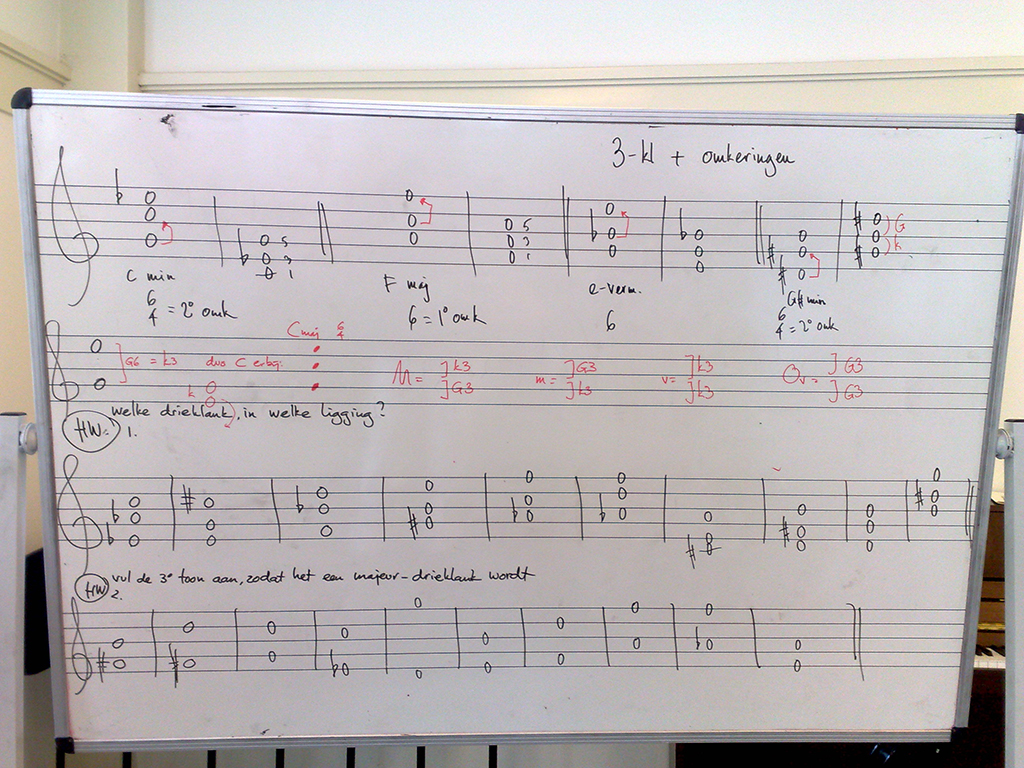 3-kl + omkeringen
5
3
1
5
3
1
G
k
C min
6
4 = 2° omk
F maj
6 = 1° omk
e-verm.
6
G# min
6
4 = 2° omk
C maj 6
4
G6 = k3 dus C erbij:
k
M = k3
G3
m = G3
k3
v = k3
k3
Ov = G3
G3
welke drieklank, in welke ligging?
HW:
1.
HW
2.
vul de 3° toon aan, zodat het een majeur-drieklank wordt